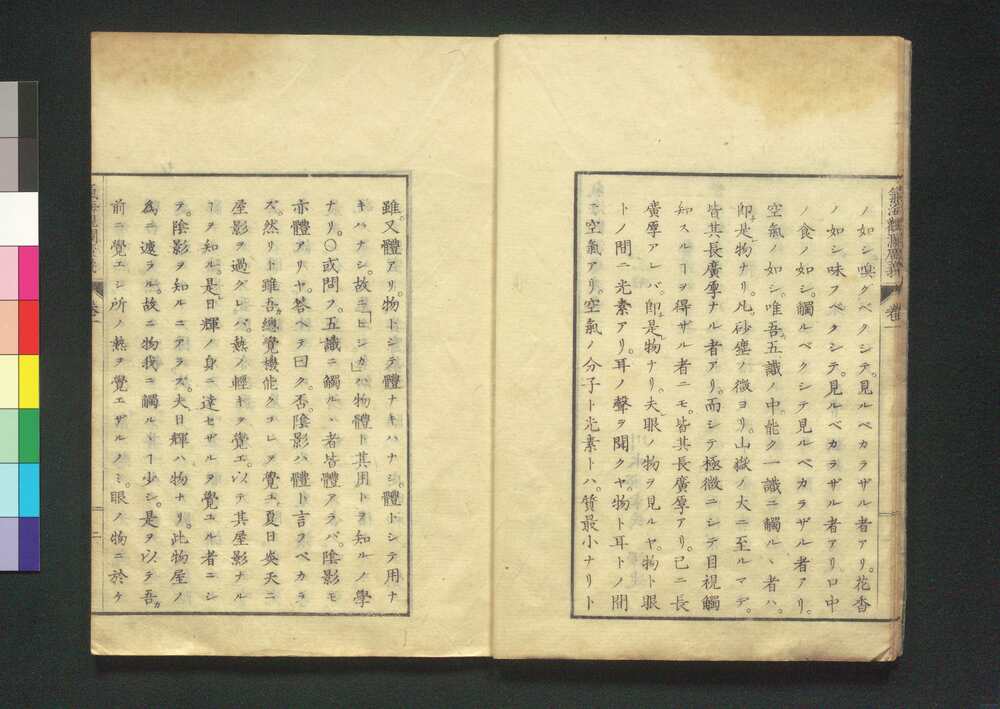 氣海觀瀾廣義 卷一
ノ如シ嗅グベクシテ。見ルベカラザル者アリ。花香
ノ如シ味フベクシテ。見ルベカラザル者アリ。口中
ノ食ノ如シ。觸ルベクシテ見ルベカラザル者アリ。
空氣ノ如シ。唯吾五識ノ中。能ク一識ニ觸ルヽ者ハ。
即是物ナリ。凡砂塵ノ微ヨリ。山嶽ノ大ニ至ルマデ。
皆其長廣厚ナル者アリ。而シテ極微ニシテ目視觸
知スルヿヲ得ザル者ニモ。皆其長廣厚アリ。已ニ長
廣厚アレバ。即是物ナリ。夫眼ノ物ヲ見ルヤ。物ト眼
トノ間ニ光素アリ。耳ノ聲ヲ聞クヤ。物ト耳トノ間
ニ空氣アリ。空氣ノ分子ト光素トハ。質最小ナリト
雖。又體アリ。物トシテ體ナキハナシ。體トシテ用ナ
キハナシ。故ニ「ヒシカ」ハ物體ト其用トヲ知ルノ學
ナリ。〇或問フ。五識ニ觸ルヽ者皆體アラバ。陰影モ
亦體アリヤ。答ヘテ曰ク。否。陰影ハ體ト言フベカラ
ズ。然リト雖吾ガ總覺機能クコレヲ覺エ。夏日炎天ニ
屋影ヲ過グレバ。熱ノ輕キヲ覺エ。以テ其屋影ナル
ヿヲ知ル。是日輝ノ身ニ達セザルヲ覺ユル者ニシ
テ。陰影ヲ知ルニアラズ。夫日輝ハ物ナリ。此物屋ノ
爲ニ遮ラル。故ニ物我ニ觸ルヽヿ少シ。是ヲ以テ吾ガ
前ニ覺エシ所ノ熱ヲ覺エザルノミ。眼ノ物ニ於ケ
卷一 二